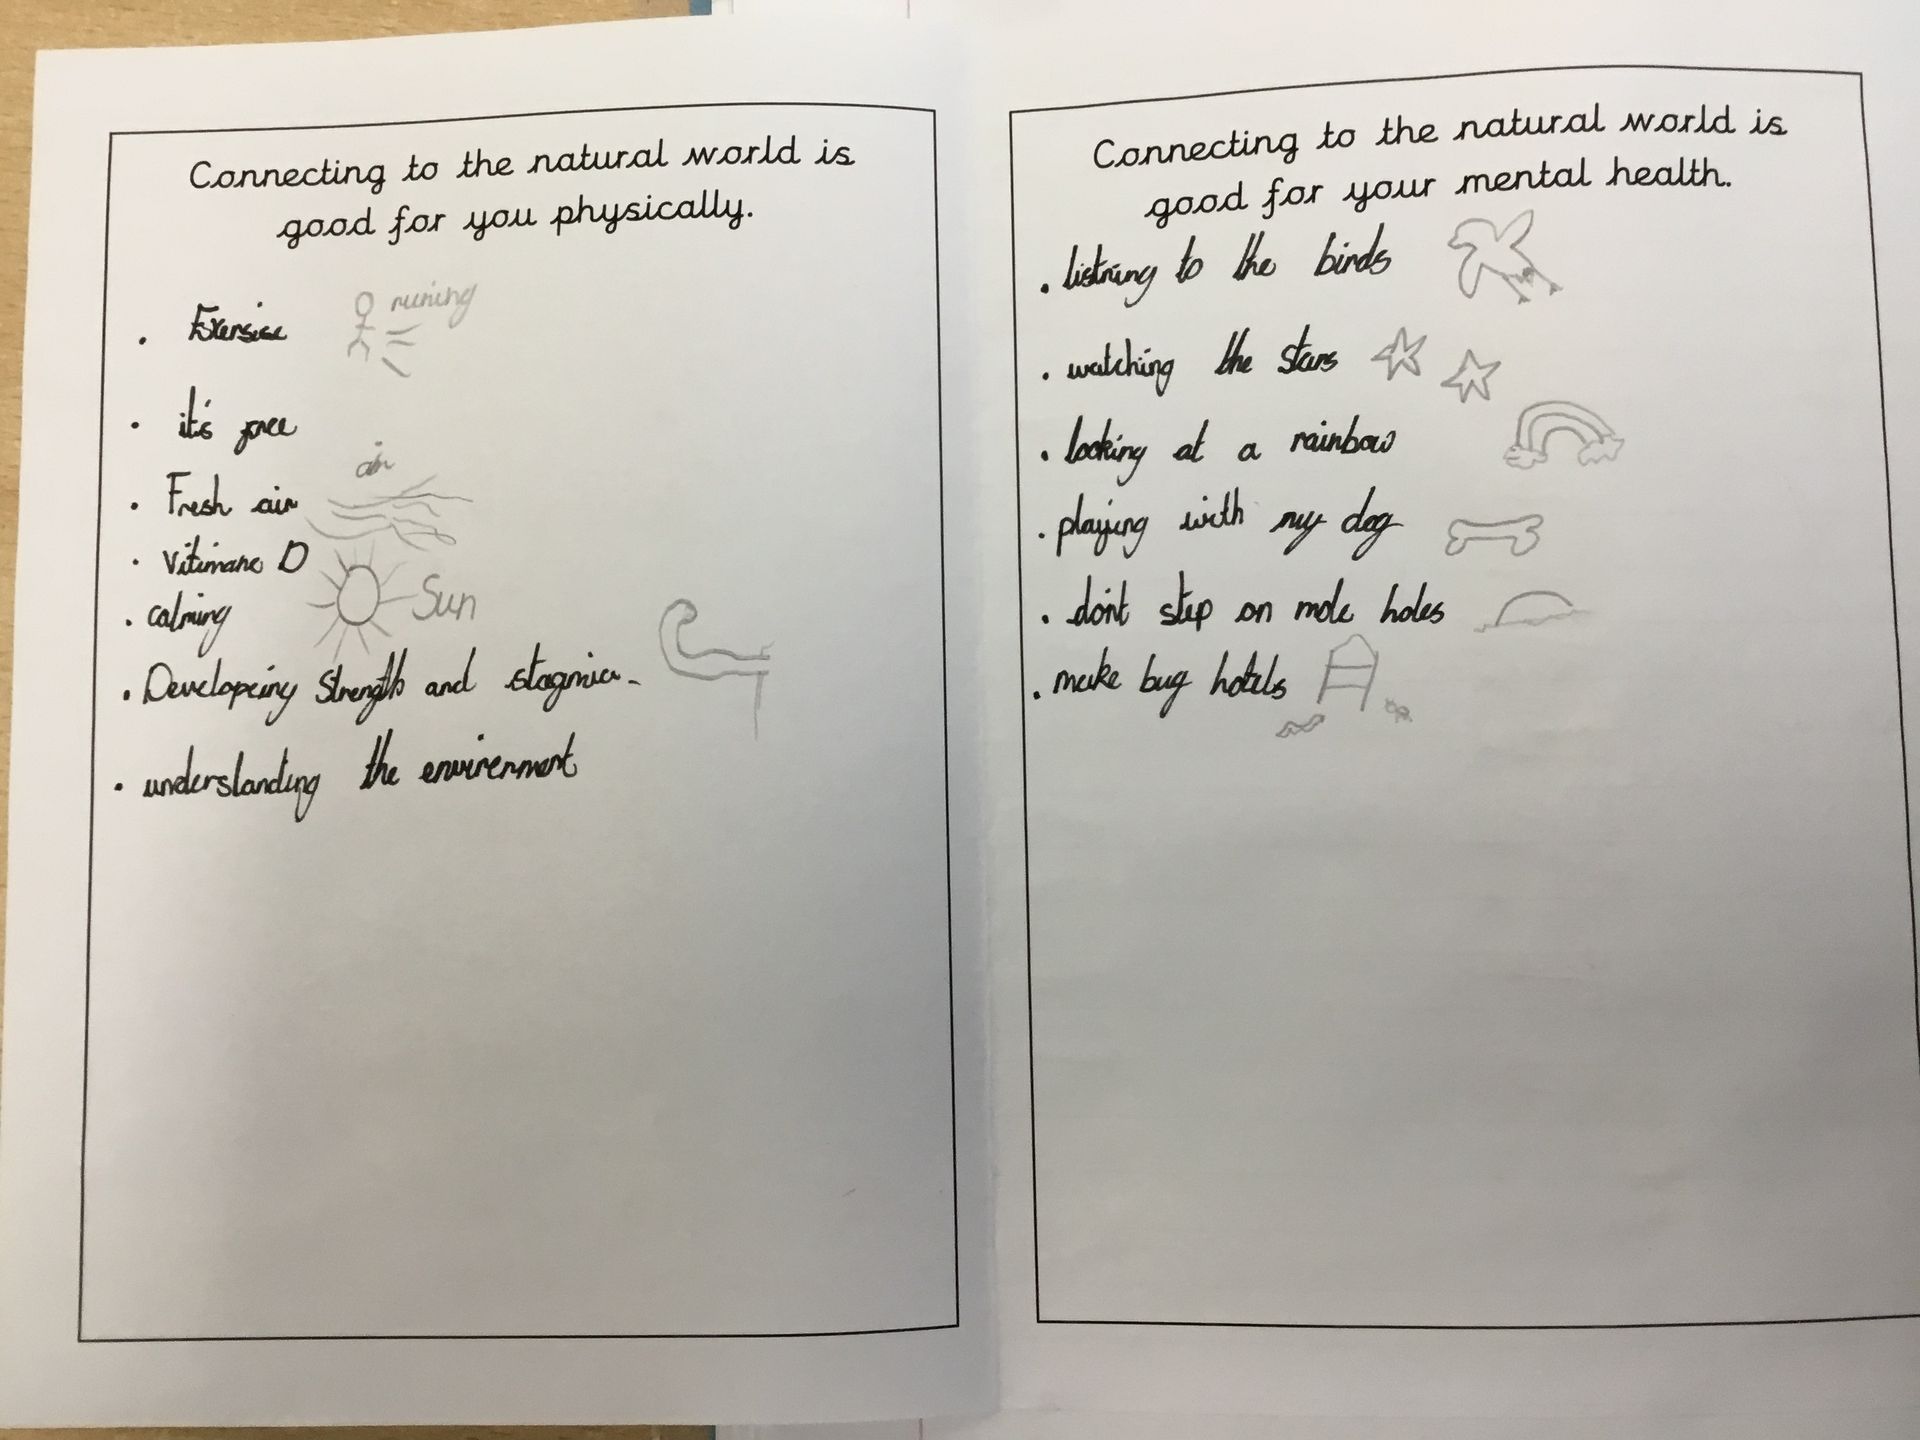 Connecting to the natural world is
good for you physically.
. Exersise runing
. it's free
air
. Fresh air
. Vitimane D
Sun
. calming
. Developeing strength and stagmia.
. understanding the envirenment
Connecting to the natural world is
good for your mental health.
. listning to the birds
. watching the stars
. looking at a rainbow
. playing with my dog
. don't step on mole holes
. make bug hotels